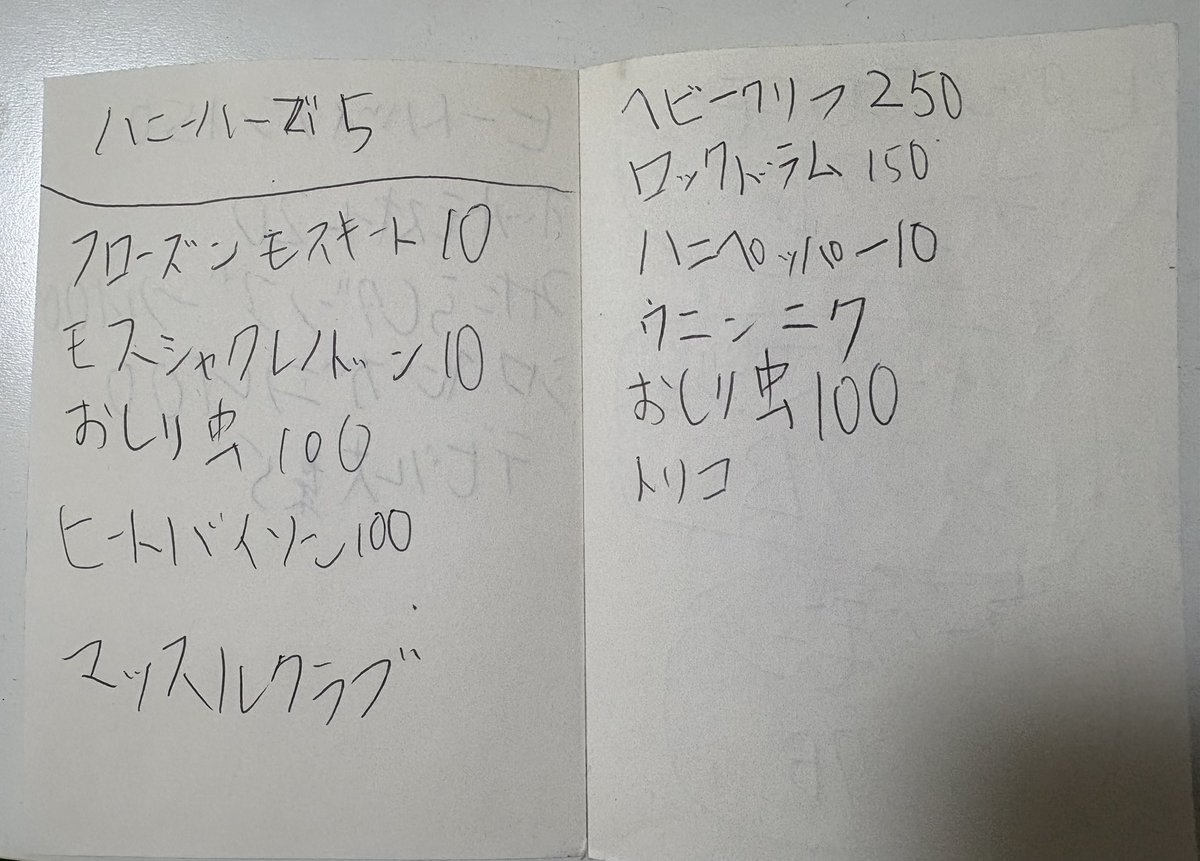 ハニーハーズ 5
フローズンモスキート 10
モスシャクレノドン 10
おしり虫 100
ヒートバイソン 100
マッスルクラブ
ヘビークリフ 250
ロックドラム 150
ハニペッパー 10
ウニンニク
おしり虫 100
トリコ